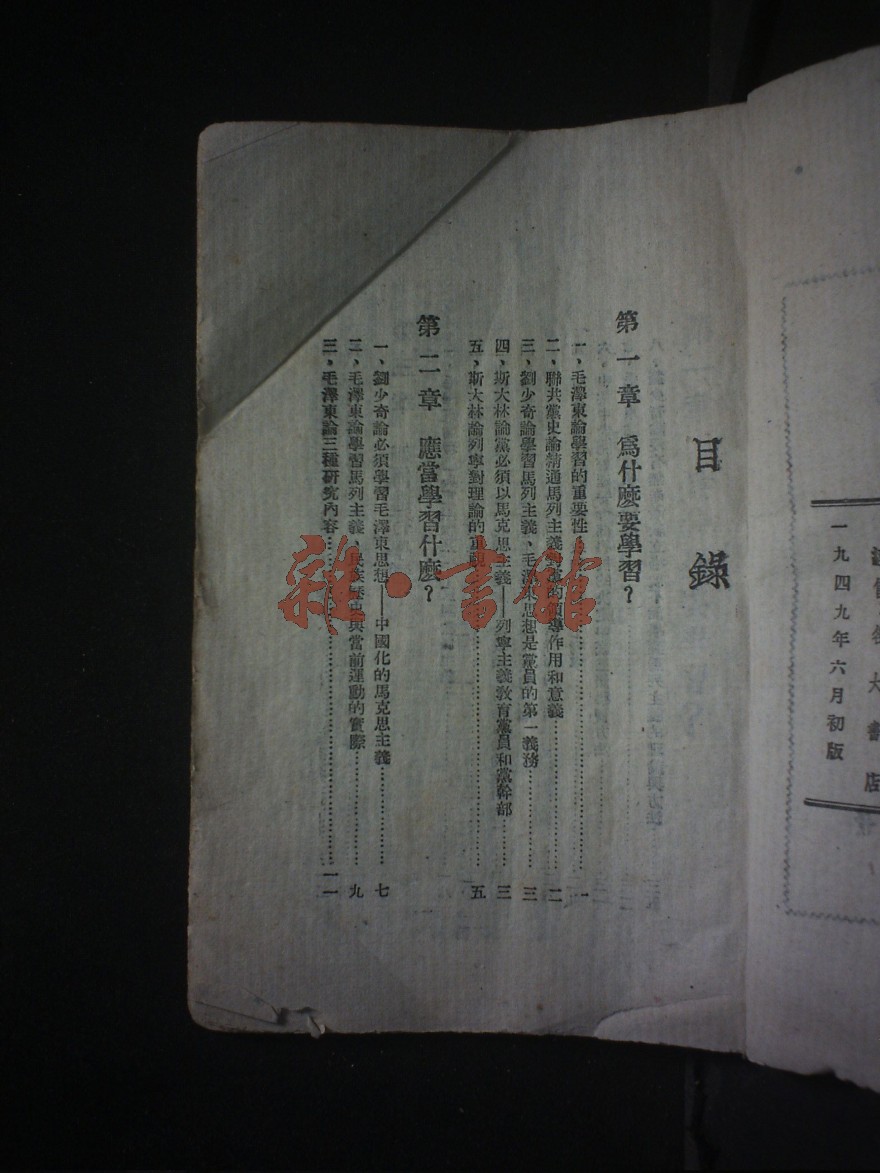 一九四九年六月初版
目錄
第一章　爲什麽要學習？
一、毛澤東論學習的重要性……一
二、聯共黨史論精通馬列主義對黨的領導作用和意義……二
三、劉少奇論學習馬列主義、毛澤東思想是黨員的第一義務……三
四、斯大林論黨必須以馬克思主義——列寧主義教育黨員和黨幹部……三
五、斯大林論列寧對理論的重視……五
第二章　應當學習什麽？
一、劉少奇論必須學習毛澤東思想——中國化的馬克思主義……七
二、毛澤東論學習馬列主義、民族歷史與當前運動的實際……九
三、毛澤東論三種研究內容……一一
雜·書館